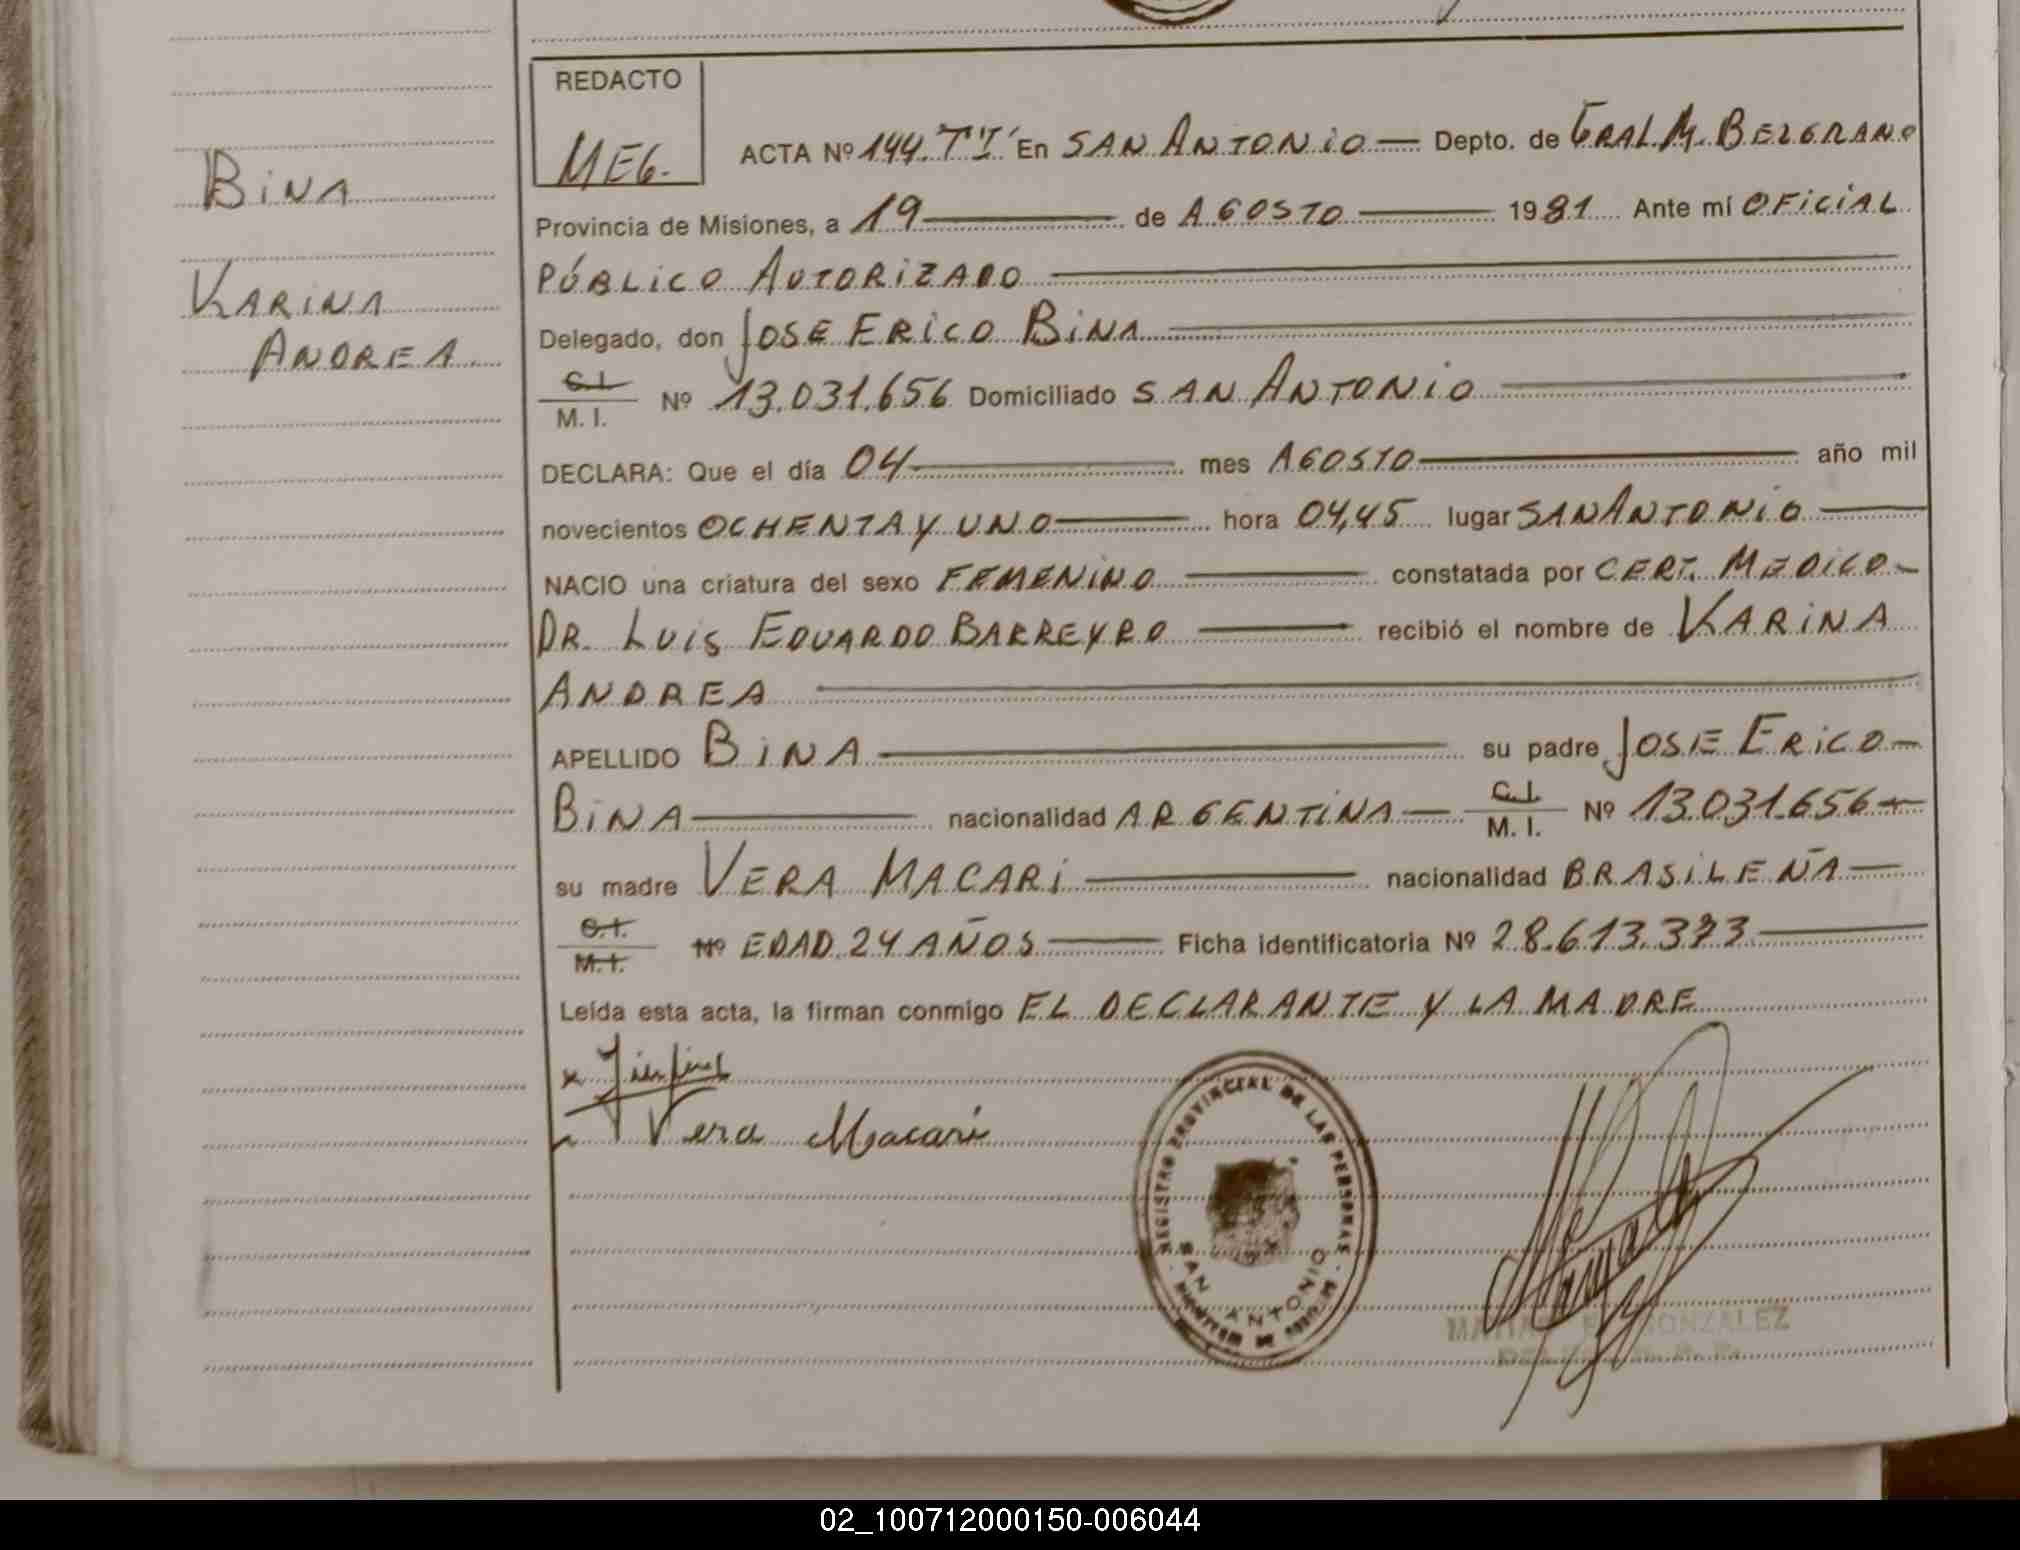 BINA
KARINA
ANDREA
REDACTO
MEG.
ACTA Nº 144 "TI" En SAN ANTONIO — Depto. de GRAL M. BELGRANO
Provincia de Misiones, a 19 — de AGOSTO — 1981 Ante mí OFICIAL
PÚBLICO AUTORIZADO
Delegado, don JOSE ERICO BINA
C.I. M. I. Nº 13.031.656 Domiciliado SAN ANTONIO
DECLARA: Que el día 04 — mes AGOSTO — año mil
novecientos OCHENTA Y UNO — hora 04,45 lugar SAN ANTONIO —
NACIO una criatura del sexo FEMENINO — constatada por CERT. MEDICO -
DR. LUIS EDUARDO BARREYRO — recibió el nombre de KARINA
ANDREA
APELLIDO BINA — su padre JOSE ERICO -
BINA — nacionalidad ARGENTINA — C.I. M. I. Nº 13.031.656 -
su madre VERA MACARI — nacionalidad BRASILEÑA —
C.I. M.I. Nº EDAD 24 AÑOS — Ficha identificatoria Nº 28.613.373 —
Leída esta acta, la firman conmigo EL DECLARANTE Y LA MADRE
x
Vera Macari
REGISTRO PROVINCIAL DE LAS PERSONAS
SAN ANTONIO
GONZALEZ
02_100712000150-006044